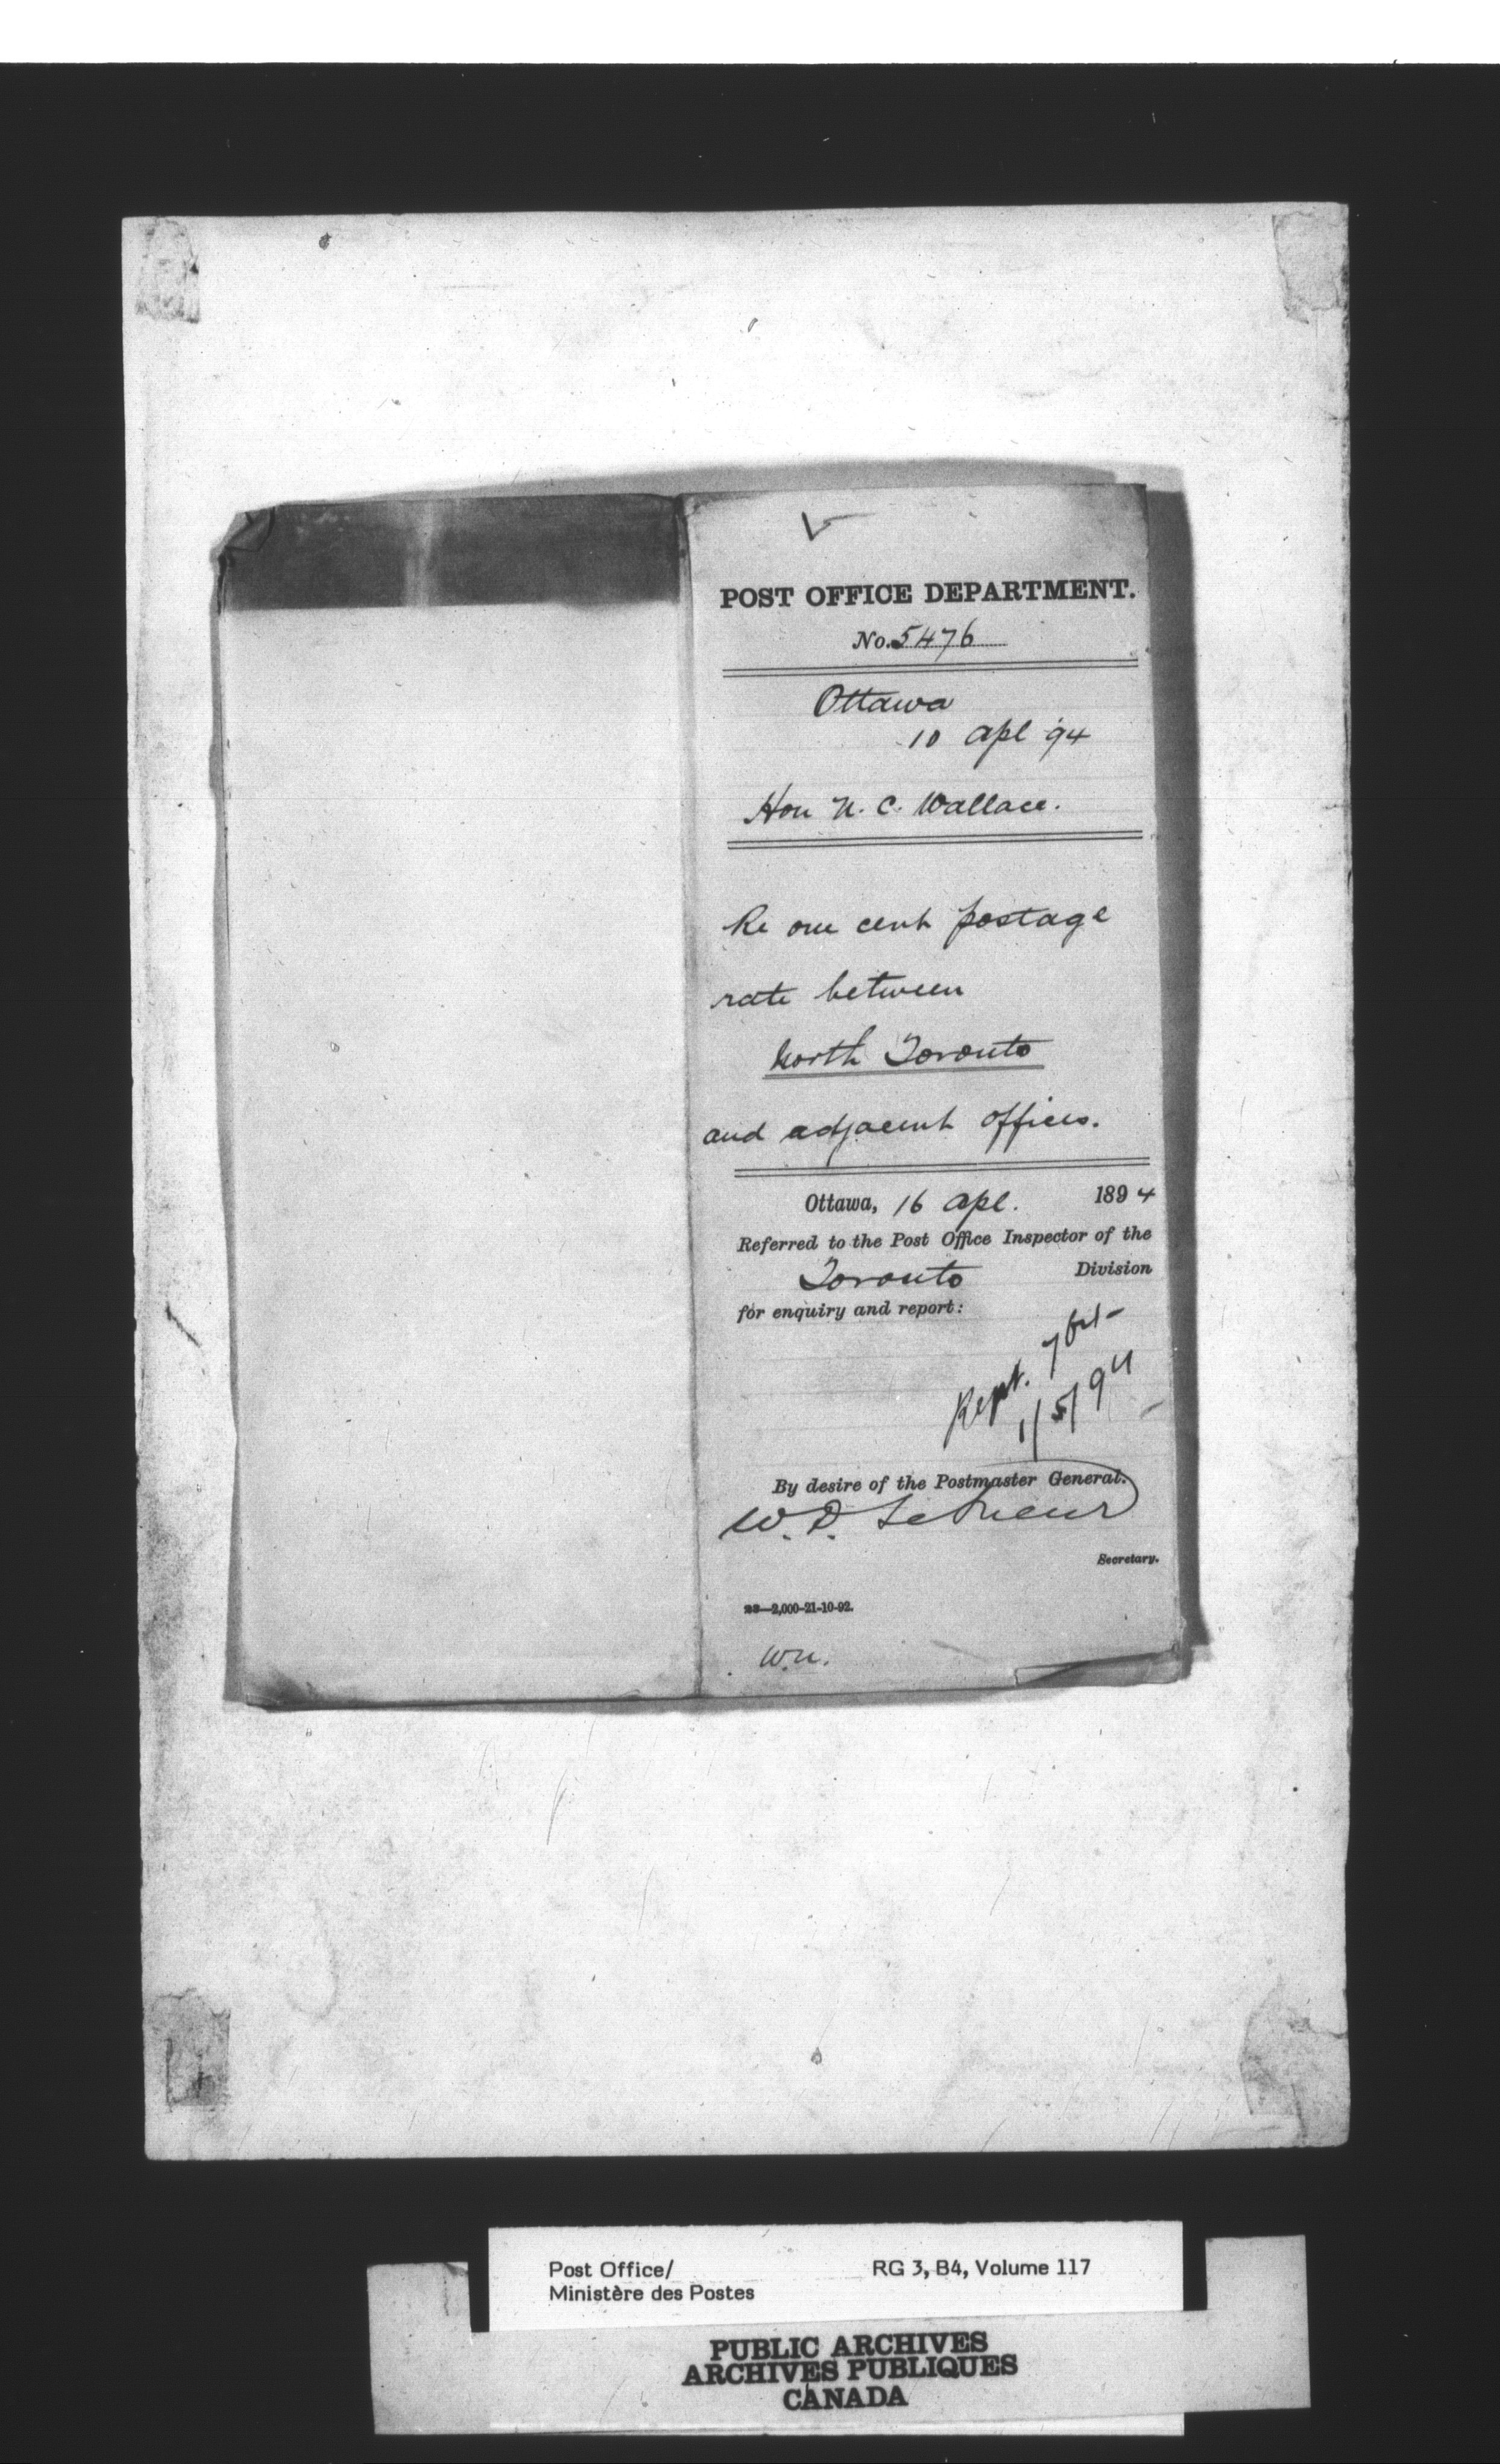 POST OFFICE DEPARTMENT.
No. 5476
Ottawa
10 Apl '94
Hon N. C. Wallace.
Re one cent postage
rate between
North Toronto
and adjacent offices.
Ottawa, 16 Apl. 1894
Referred to the Post Office Inspector of the
Toronto Division
for enquiry and report:
Rept.
1/5/94
By desire of the Postmaster General.
W. D. LeSueur
Secretary.
—2,000-21-10-92.
Post Office/ RG 3, B4, Volume 117
Ministère des Postes
PUBLIC ARCHIVES
ARCHIVES PUBLIQUES
CANADA